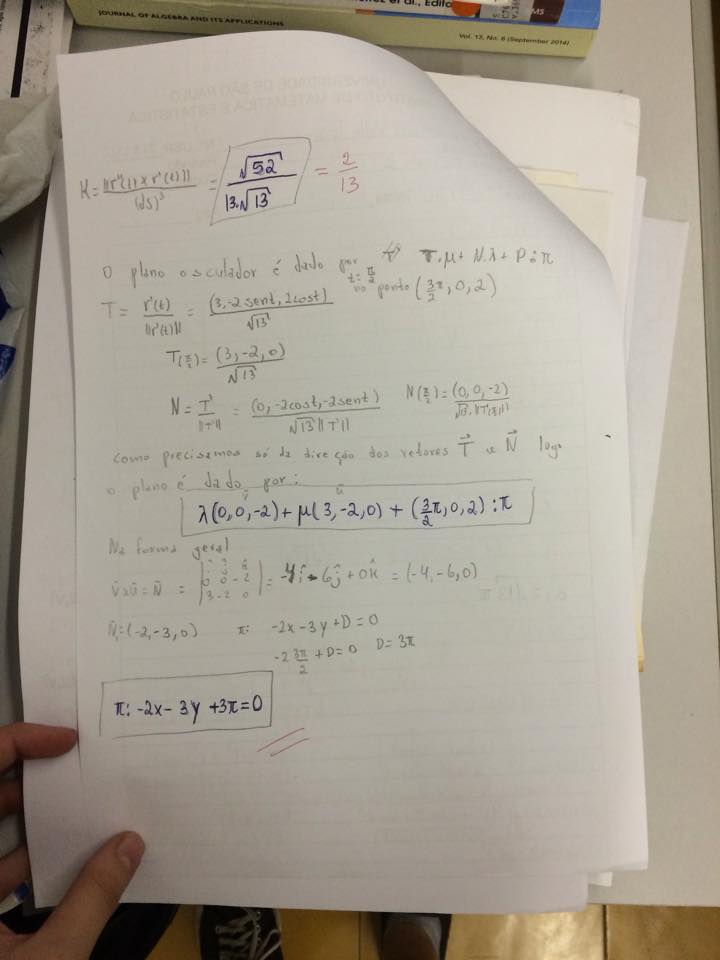 JOURNAL OF ALGEBRA AND ITS APPLICATIONS
Vol. 13, No. 6 (September 2014)
K = ||r''(t) x r'(t)|| / (ds)³ = √52 / 13·√13 = 2/13
O plano osculador é dado por T.μ + N.λ + P : π
t = π/2 no ponto (3π/2, 0, 2)
T = r'(t) / ||r'(t)|| = (3, -2 sent, 2cost) / √13
T(π/2) = (3, -2, 0) / √13
N = T' / ||T'|| = (0, -2cost, -2sent) / √13 ||T'|| N(π/2) = (0, 0, -2) / √13 · ||T'(π/2)||
Como precisamos só da direção dos vetores T⃗ e N⃗ logo
o plano é dado por:
v⃗ u⃗
λ(0, 0, -2) + μ(3, -2, 0) + (3/2 π, 0, 2) : π
Na forma geral
v⃗ x u⃗ = N⃗ = | î ĵ k̂ ; 0 0 -2 ; 3 -2 0 | = -4î - 6ĵ + 0k̂ = (-4, -6, 0)
N⃗₁ = (-2, -3, 0) π: -2x - 3y + D = 0
-2 3π/2 + D = 0 D = 3π
π: -2x - 3y + 3π = 0